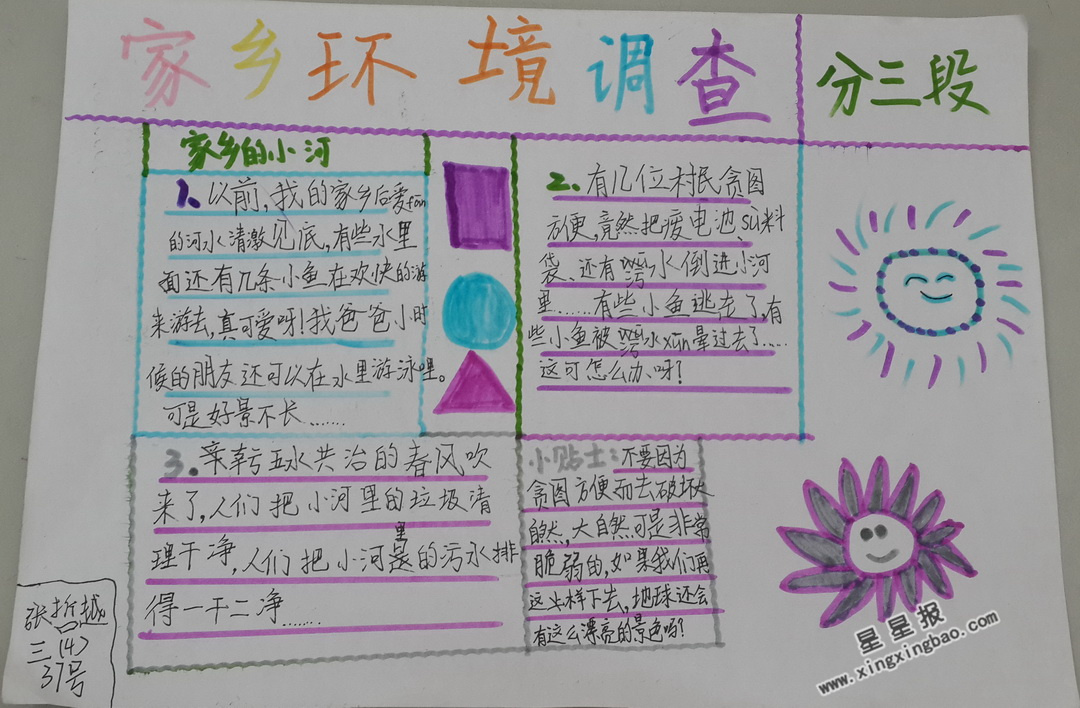 家乡环境调查
分三段
家乡的小河
1、以前,我的家乡后爱fan
的河水清澈见底,有些水里
面还有几条小鱼在欢快的游
来游去,真可爱呀!我爸爸小时
候的朋友还可以在水里游泳哩。
可是好景不长……
2.有几位村民贪图
方便,竟然把废电池、sù料
袋、还有污水倒进小河
里……有些小鱼逃走了,有
些小鱼被污水xūn晕过去了……
这可怎么办呀?
3.亲亏五水共治的春风吹
来了,人们把小河里的垃圾清
理干净,人们把小河里的污水排
得一干二净……
小贴士:不要因为
贪图方便而去破坏大
自然,大自然可是非常
脆弱的,如果我们再
这样下去,地球还会
有这么漂亮的景色吗?
张哲越
三(4)
37号
星星报
www.xingxingbao.com